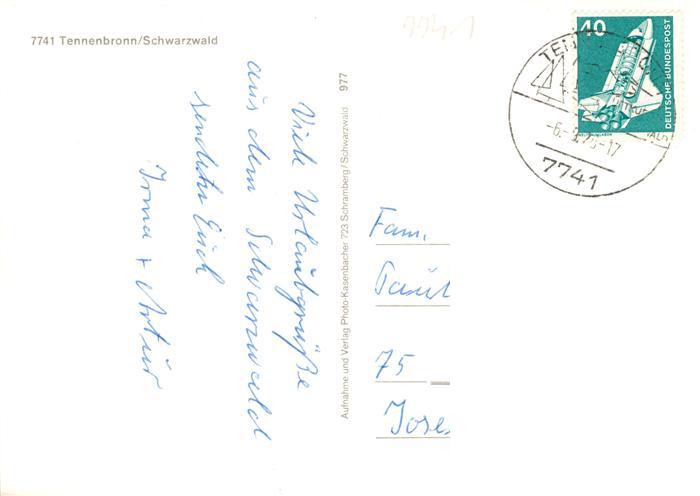 7741 Tennenbronn/Schwarzwald
7741
Viele Urlaubsgrüße
aus dem Schwarzwald
senden Euch
Irma + Artur
Aufnahme und Verlag Photo-Kasenbacher 723 Schramberg/Schwarzwald 977
40
DEUTSCHE BUNDESPOST
-6.-
-17
7741
Fam.
75